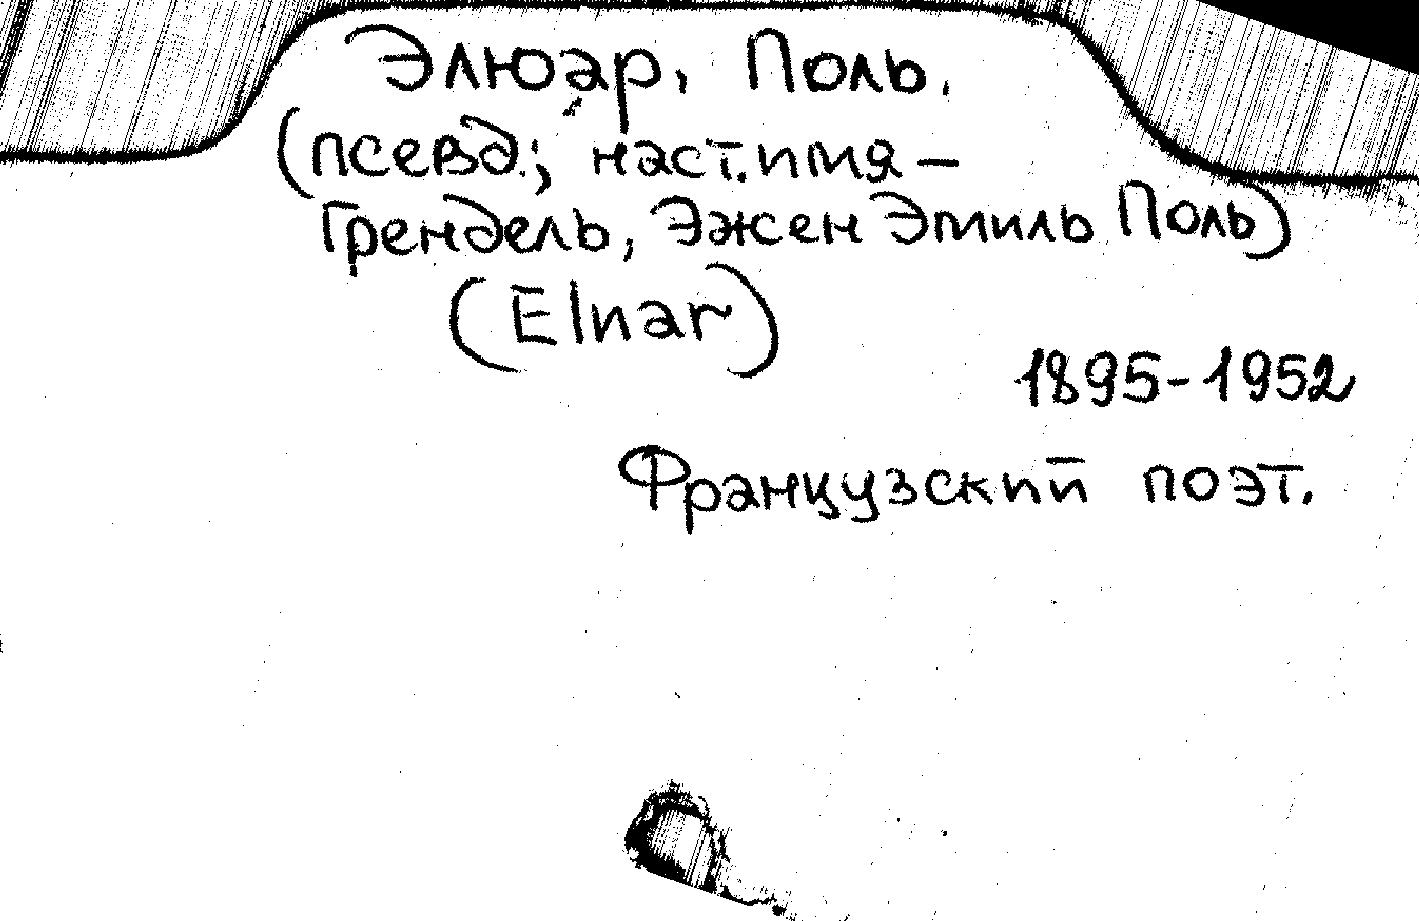 Элюар, Поль.
(псевд.; наст. имя –
Грендель, Эжен Эмиль Поль)
(Eluar)
1895-1952
Французский поэт.